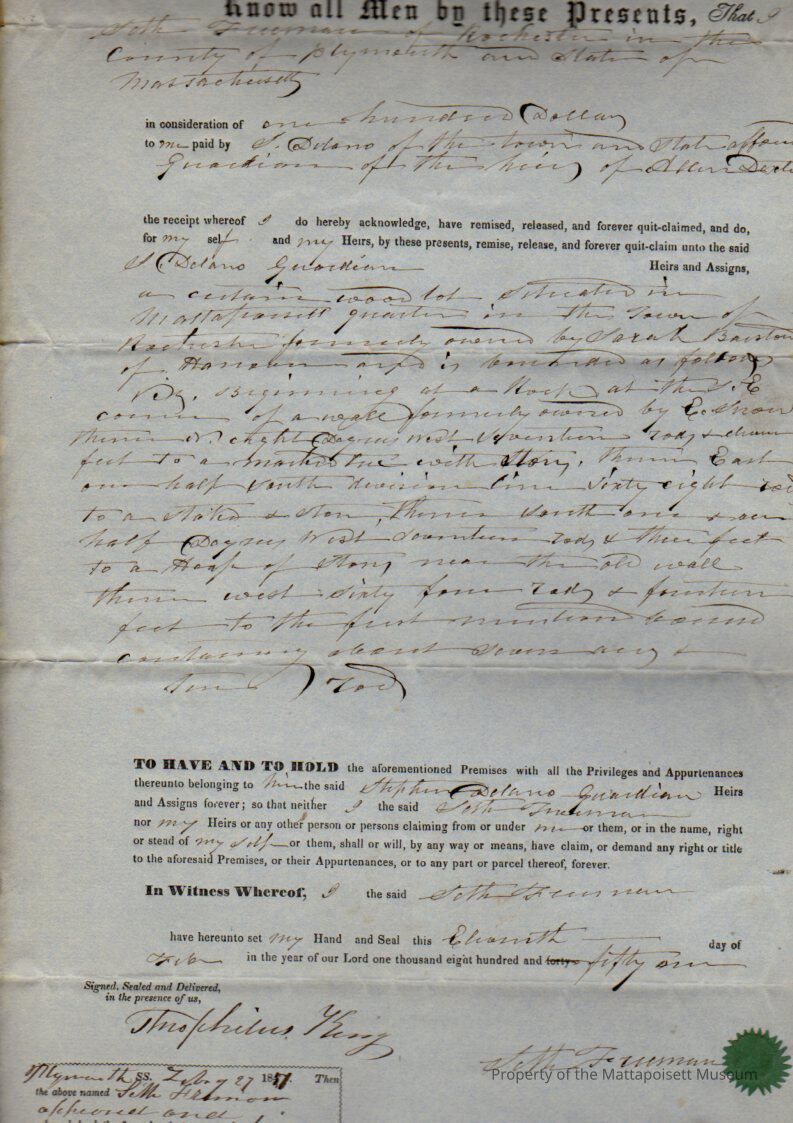 Know all Men by these Presents, That I
Seth Freeman of Rochester in the
County of Plymouth and State of
Massachusetts
in consideration of one hundred Dollars
to me paid by S. Delano of the town and State
Guardian of the heirs of Allen
the receipt whereof I do hereby acknowledge, have remised, released, and forever quit-claimed, and do,
for my self and my Heirs, by these presents, remise, release, and forever quit-claim unto the said
S. Delano Guardian Heirs and Assigns,
a certain wood lot situated in
Mattapoisett quarter in the Town of
Rochester formerly owned by Sarah Barstow
of Hanover and is bounded as follows
Viz. Beginning at a Rock at the S. E
corner of a wall formerly owned by E.
thence N. eight Degrees West Seventeen rods &
feet to a marked tree with stones, thence East
one half South division line Sixty eight rods
to a stake & stone, thence South one & one
half Degrees West Seventeen rods & three feet
to a Heap of stones near the old wall
thence west sixty four rods & fourteen
feet to the first mentioned bound
containing about seven acres &
ten rods
TO HAVE AND TO HOLD the aforementioned Premises with all the Privileges and Appurtenances
thereunto belonging to him the said Stephen Delano Guardian Heirs
and Assigns forever; so that neither I the said Seth Freeman
nor my Heirs or any other person or persons claiming from or under me or them, or in the name, right
or stead of my self or them, shall or will, by any way or means, have claim, or demand any right or title
to the aforesaid Premises, or their Appurtenances, or to any part or parcel thereof, forever.
In Witness Whereof, I the said Seth Freeman
have hereunto set my Hand and Seal this Eleventh day of
Feb in the year of our Lord one thousand eight hundred and forty- fifty one
Signed, Sealed and Delivered,
in the presence of us,
Theophilus King
Seth Freeman
Plymouth SS. Feby 27 1851 Then
the above named Seth Freeman
appeared and
Property of the Mattapoisett Museum